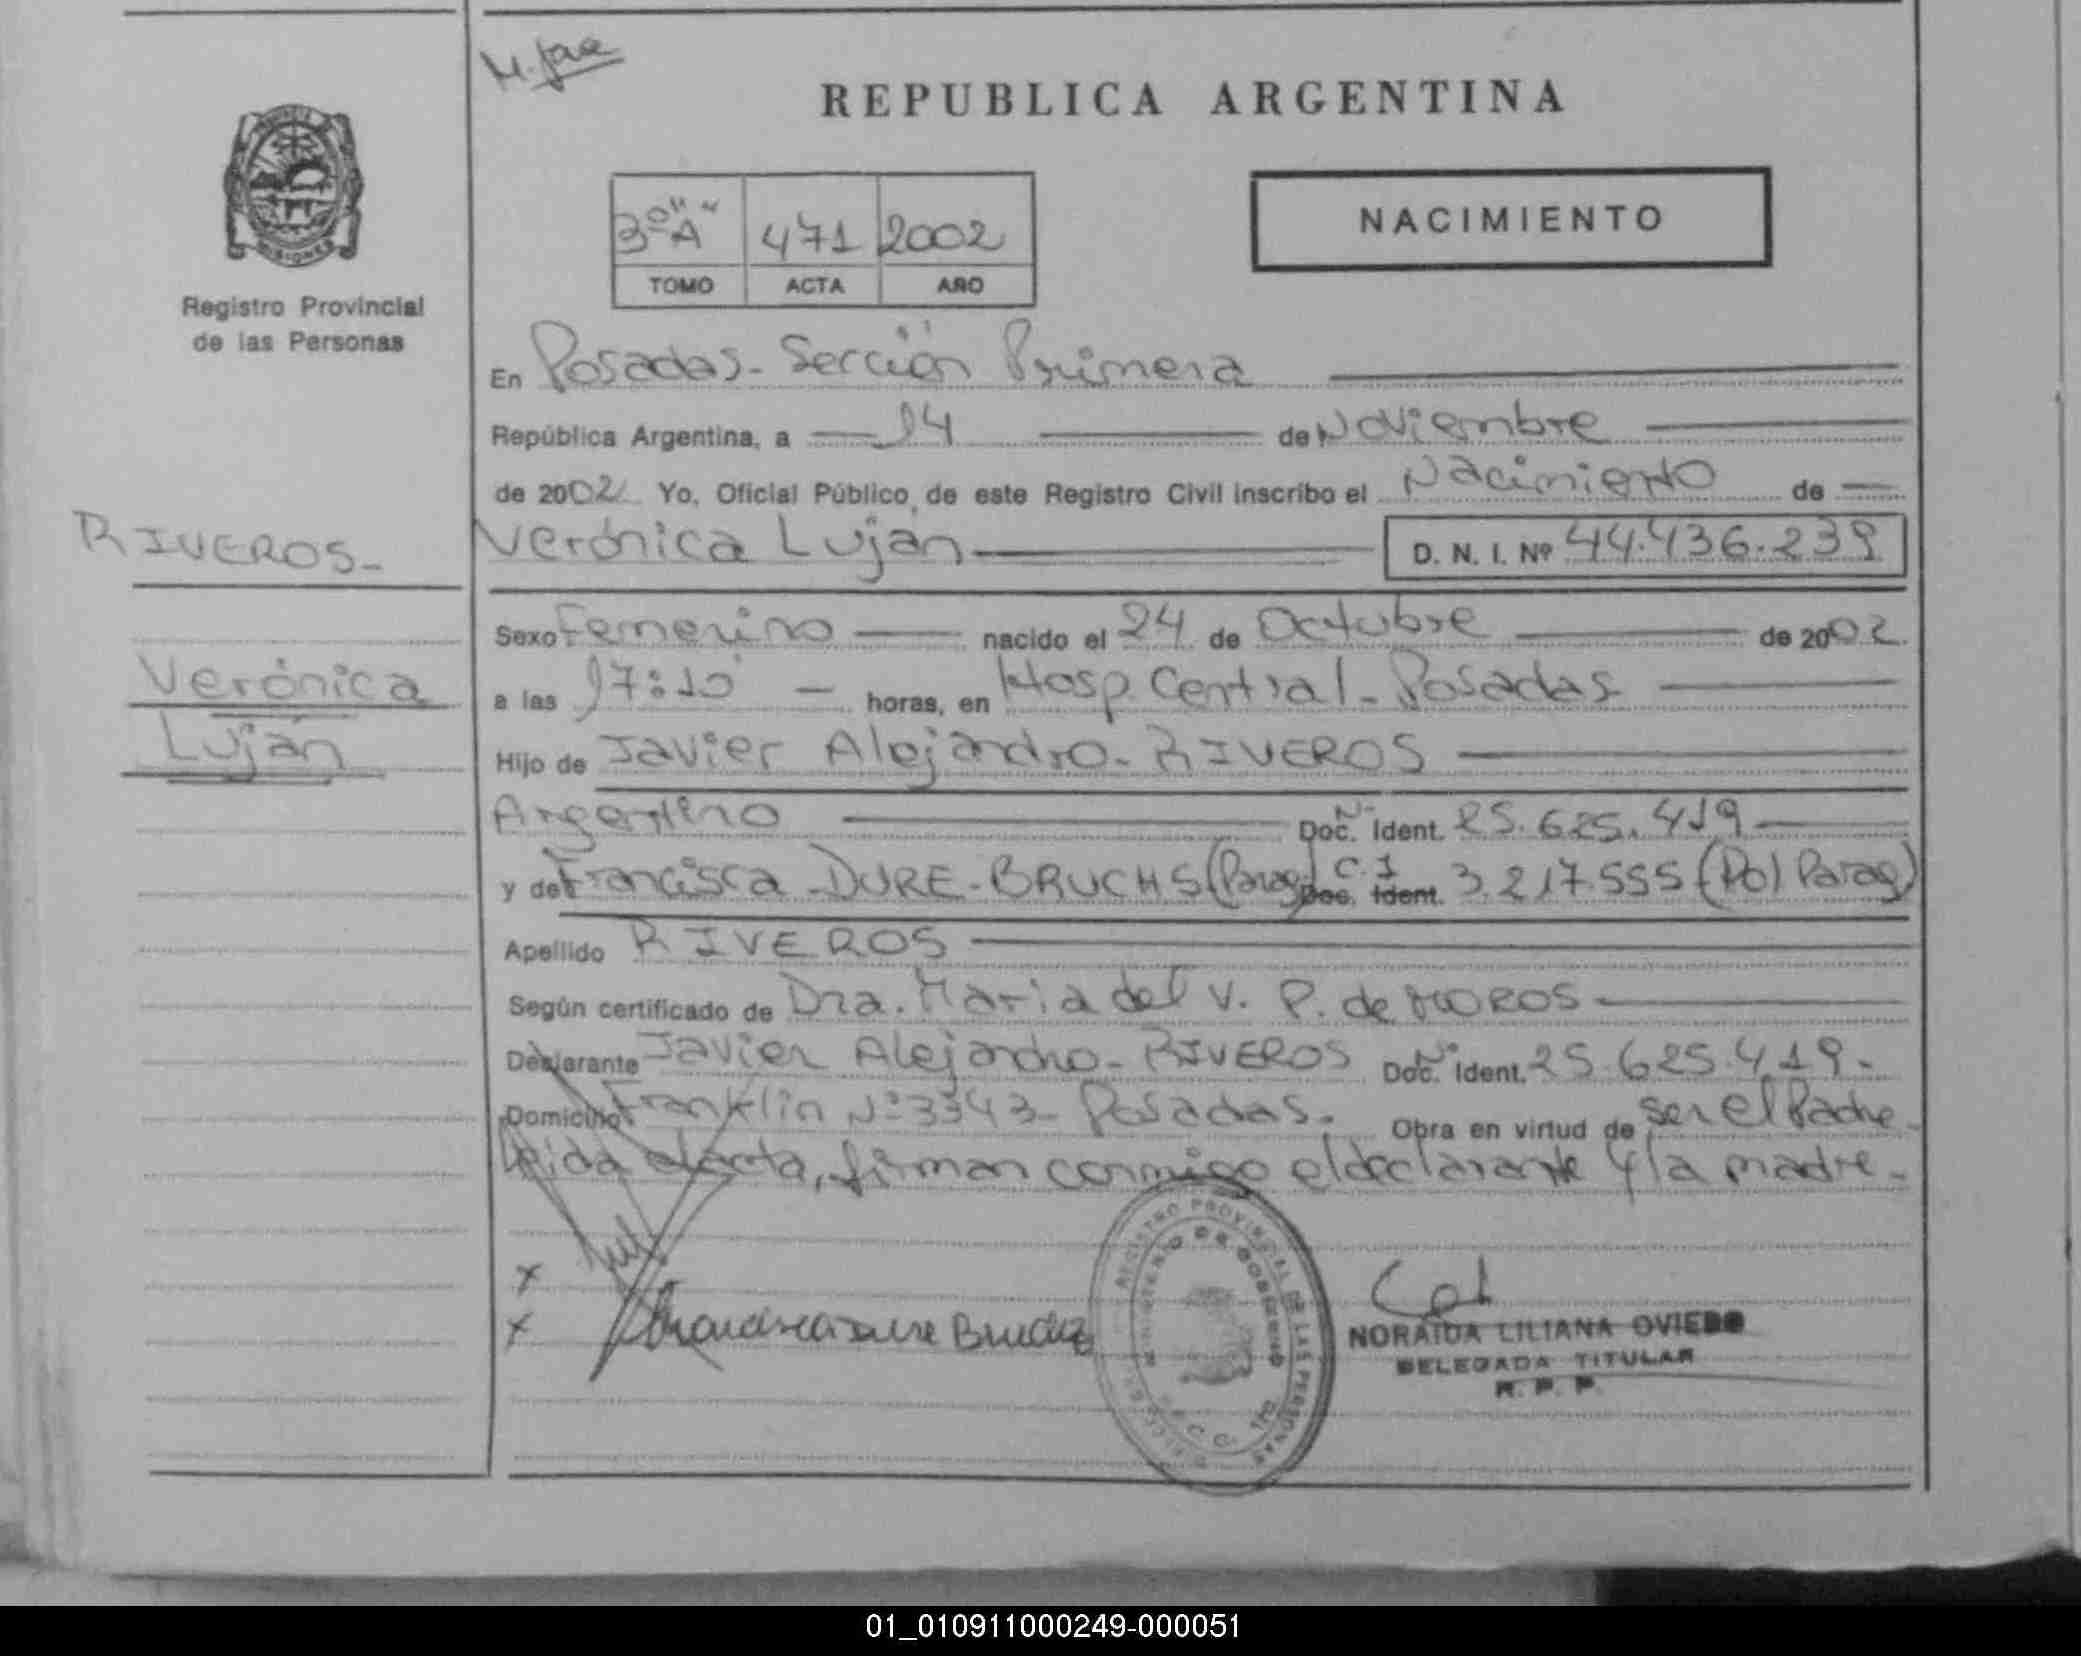 REPUBLICA ARGENTINA
NACIMIENTO
3º "A" 471 2002
TOMO ACTA AÑO
Registro Provincial
de las Personas
En Posadas - Sección Primera
República Argentina, a 14 de Noviembre
de 2002 Yo, Oficial Público, de este Registro Civil inscribo el Nacimiento de
Verónica Luján D. N. I. Nº 44.436.239
RIVEROS-
Verónica
Luján
Sexo Femenino nacido el 24 de Octubre de 2002.
a las 17:10 horas, en Hosp. Central - Posadas
Hijo de Javier Alejandro - RIVEROS
Argentino Doc. Ident. 25.625.419
y de Francisca DURE - BRUCHS (Parag) C.I Doc. Ident. 3.217.555 (Pol Parag)
Apellido RIVEROS
Según certificado de Dra. Maria del V. P. de MOROS
Declarante Javier Alejandro - RIVEROS Doc. Ident. 25.625.419-
Domicilio Franklin Nº 3343 - Posadas. Obra en virtud de ser el Padre-
Leida el acta, firman conmigo el declarante y la madre-
x
x Francisca Dure Bruchs
REGISTRO PROVINCIAL DE LAS PERSONAS
MINISTERIO DE GOBIERNO
NORAIDA LILIANA OVIEDO
DELEGADA TITULAR
R. P. P.
01_010911000249-000051